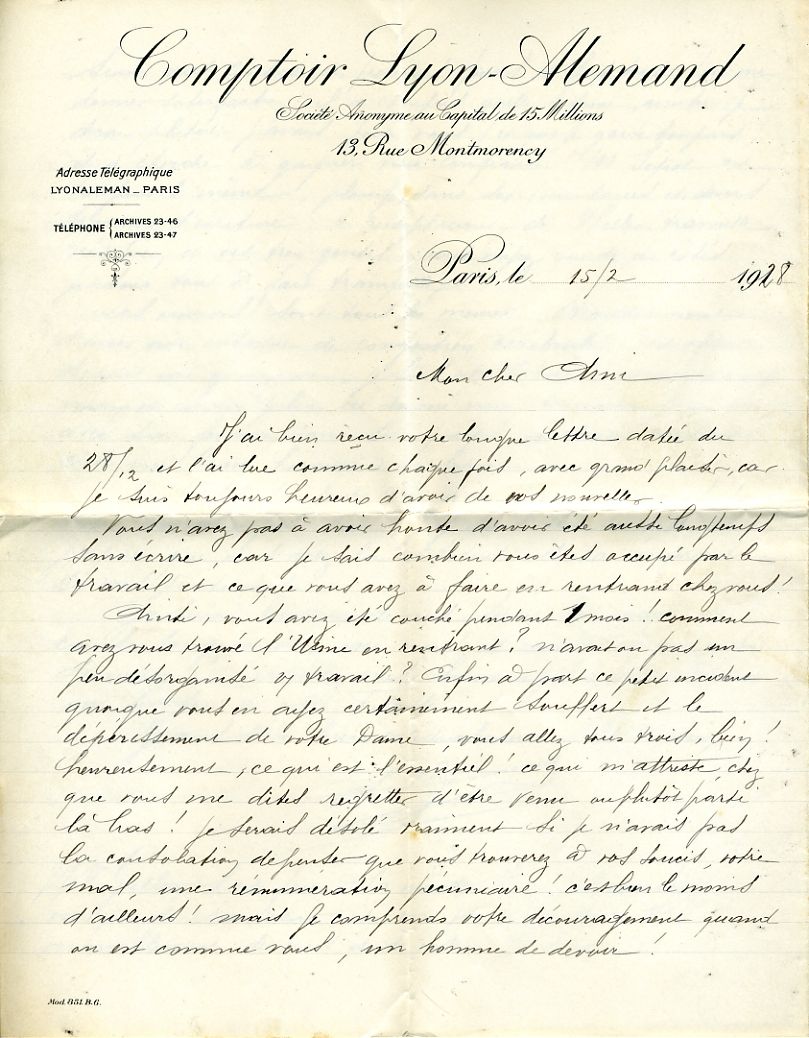 Comptoir Lyon-Alemand
Société Anonyme au Capital de 15 Millions
13, Rue Montmorency
Adresse Télégraphique
LYONALEMAN _ PARIS
TÉLÉPHONE { ARCHIVES 23-46
ARCHIVES 23-47
Paris, le 15/2 1928
Mon cher Ami
J'ai bien reçu votre longue lettre datée du
28/12 et l'ai lue comme chaque fois, avec grand plaisir, car
je suis toujours heureux d'avoir de vos nouvelles.
Vous n'avez pas à avoir honte d'avoir été aussi longtemps
sans écrire, car je sais combien vous êtes occupé par le
travail et ce que vous avez à faire en rentrant chez vous!
Ainsi, vous avez été couché pendant 1 mois! comment
avez vous trouvé l'Usine en rentrant? n'avait on pas un
peu désorganisé travail? Enfin à part ce petit incident
quoique vous en ayez certainement souffert et le
dépérissement de votre Dame, vous allez tous trois, bien!
heureusement, ce qui est l'essentiel! ce qui m'attriste, c'est
que vous me dites regretter d'être venu ou plutôt parti
là bas! je serais désolé vraiment si je n'avais pas
la consolation de penser que vous trouverez à vos soucis, votre
mal, une rémunération pécuniaire! c'est bien le moins
d'ailleurs! mais je comprends votre découragement quand
on est comme vous, un homme de devoir!
Mod. 851. B.G.